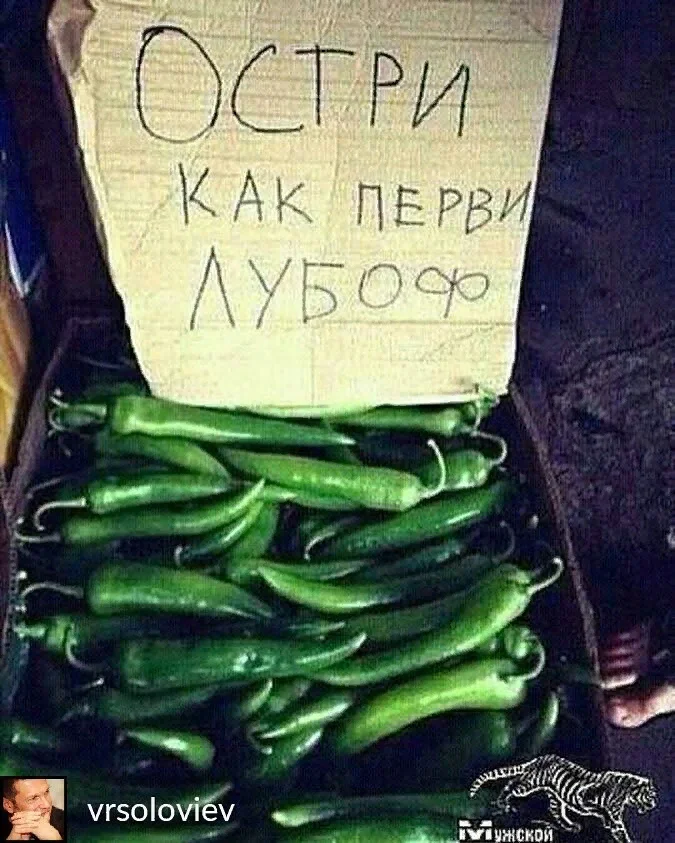 ОСТРИ
КАК ПЕРВИ
ЛУБОФ
vrsoloviev
Мужской